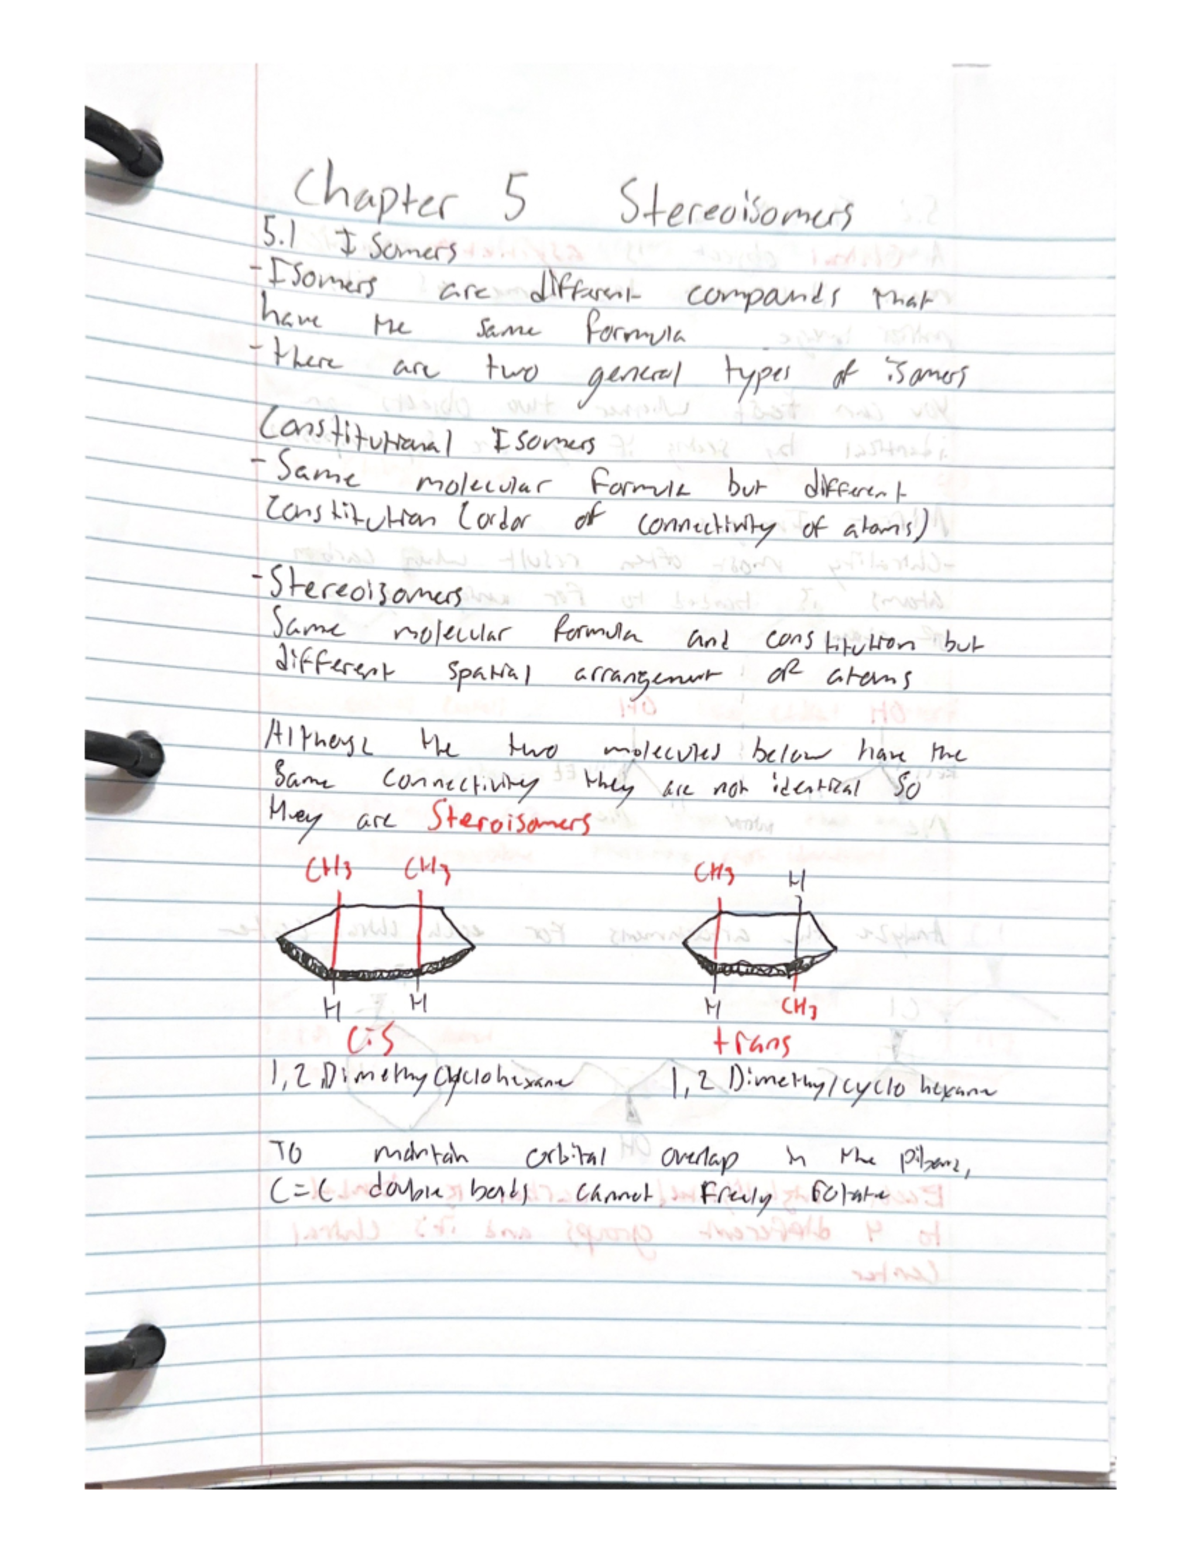 Chapter 5 Stereoisomers
5.1 Isomers
- Isomers are different compounds that
have the same formula
- there are two general types of isomers
Constitutional Isomers
- Same molecular formula but different
constitution (order of connectivity of atoms)
- Stereoisomers
Same molecular formula and constitution but
different spatial arrangement of atoms
the two molecules below have the
same connectivity they are not identical so
they are Steroisomers
CH3 CH3 CH3 H
H H H CH3
Cis trans
1,2 Dimethylcyclohexane 1,2 Dimethylcyclohexane
To maintain orbital overlap in the
C=C double bonds cannot freely rotate